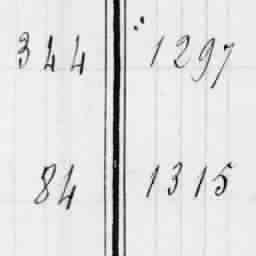 344 1297
84 1315